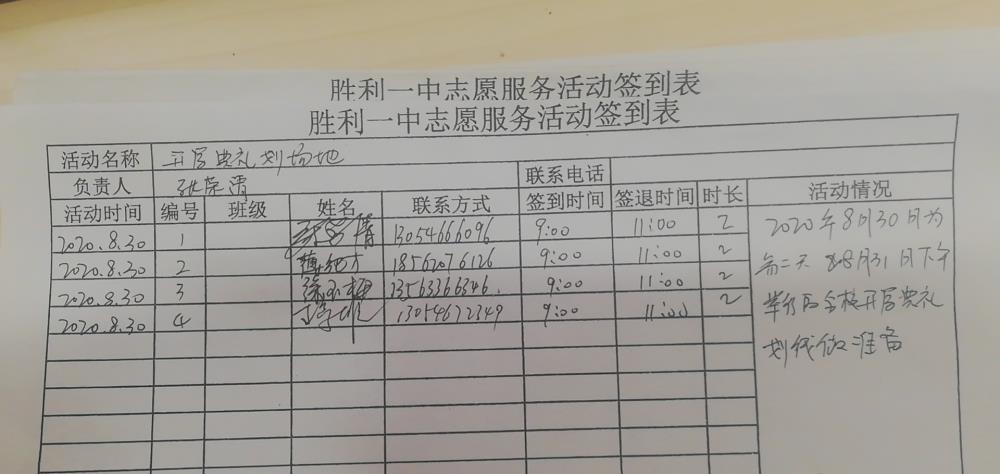 胜利一中志愿服务活动签到表
胜利一中志愿服务活动签到表
活动名称 开学典礼划场地
负责人 张荣清 联系电话
活动时间 编号 班级 姓名 联系方式 签到时间 签退时间 时长 活动情况
2020.8.30 1 13054666096 9:00 11:00 2
2020.8.30 2 18562076126 9:00 11:00 2
2020.8.30 3 13563366346. 9:00 11:00 2
2020.8.30 4 13054672349 9:00 11:00 2
2020年8月30日为
第二天 8月31日下午
举行的全校开学典礼
划线做准备